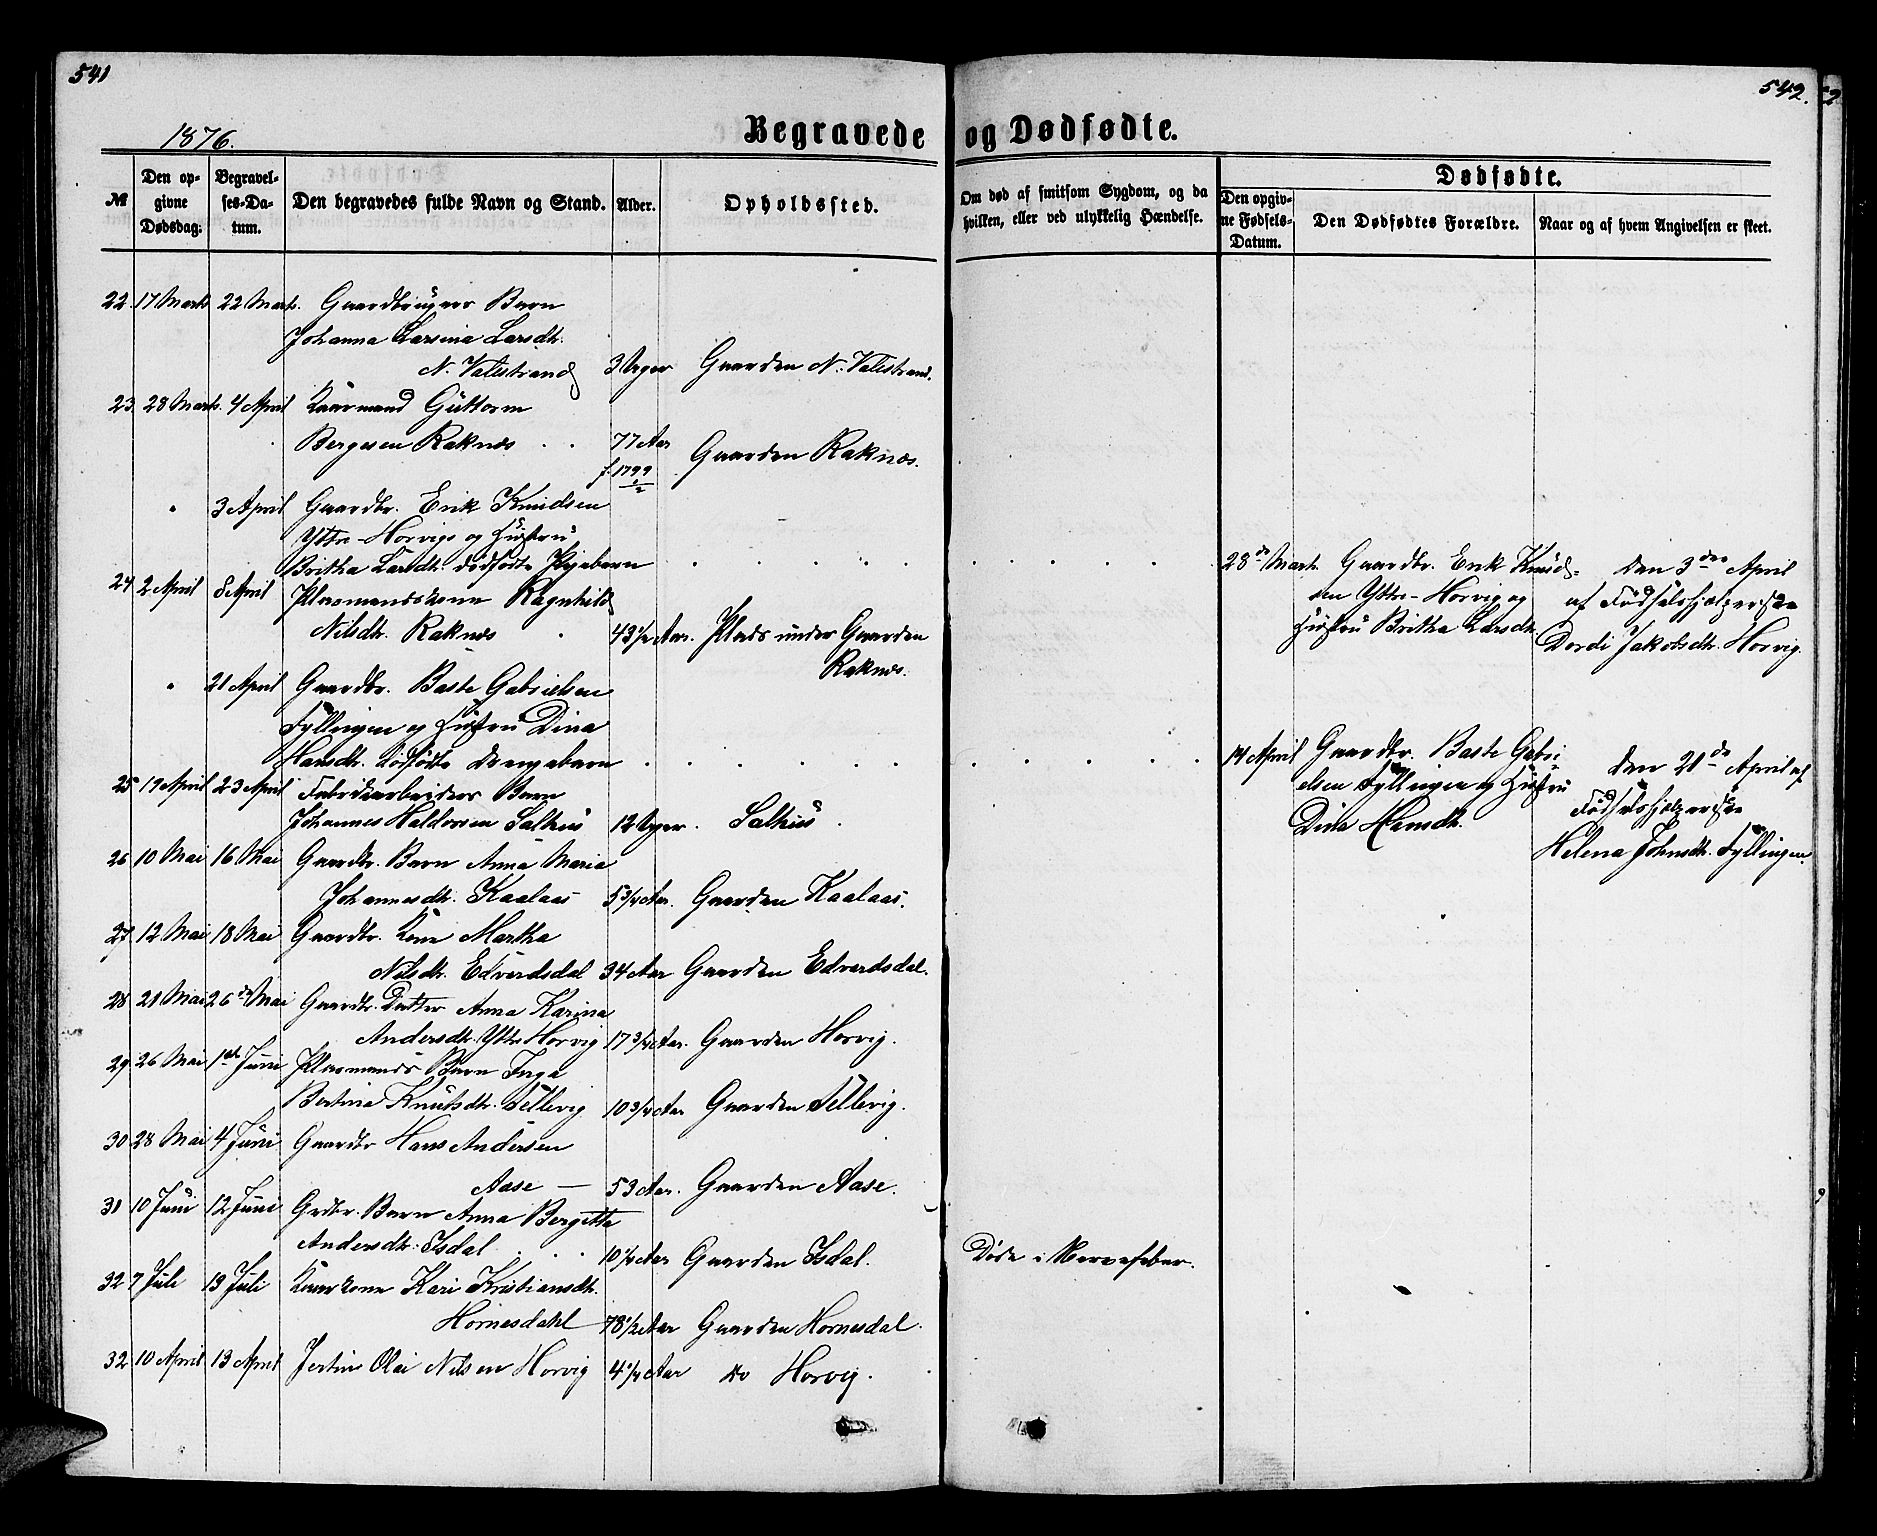 541
542.
1876.
Begravede og Dødfødte.
№
Den opgivne Dødsdag.
Begravelses-Datum.
Den begravedes fulde Navn og Stand.
Alder.
Opholdssted.
Om død af smitsom Sygdom, og da hvilken, eller ved ulykkelig Hændelse.
Dødfødte.
Den opgivne Fødsels-Datum.
Den Dødfødtes Forældre.
Naar og af hvem Angivelsen er skeet.
22 17 Marts 22 Marts. Gaardbrugers Barn
Johanna Larsina Larsdtr.
N. Valestrand 3 Uger Gaarden N. Valestrand.
23 28 Marts. 4 April Kaarmand Guttorm
Bergesen Raknes 77 Aar Gaarden Raknes.
f. 1799
" 3 April Gaardbr. Erik Knudsen
Yttre-Horvigs og Hustru
Britha Larsdtr. dødfødte Pigebarn
28de Marts Gaardbr. Erik Knud-
sen Yttre-Horvig og
Hustru Britha Larsdtr.
Den 3die April
af Fødselshjælperske
Dordi Jakobsdtr. Horvig.
24 2 April 8 April Pladsmandskone Ragnhild
Nilsdtr. Raknes 43½ Aar. Plads under Gaarden
Raknes.
" 21 April Gaardbr. Baste Gabrielsen
Fyllingen og Hustru Dina
Hansdtr. dødfødte Drengebarn
14 April Gaardbr. Baste Gabri-
elsen Fyllingen og Hustru
Dina Hansdtr.
Den 21de April af
Fødselshjælperske
Helena Johnsdtr. Fyllingen
25 19 April 23 April Fabrikarbeiders Barn
Johannes Haldorsen Salhus 12 Uger. Salhus
26 10 Mai 16 Mai Gaardbr. Barn Anna Maria
Johannesdtr. Kaalaas 5¾ Aar. Gaarden Kaalaas.
27 12 Mai 18 Mai Gaardbr. Kone Martha
Nilsdtr. Edvardsdal 34 Aar Gaarden Edvardsdal.
28 21 Mai 26de Mai Gaardbr. Datter Anna Karina
Andersdtr. Yttre Horvig 17¾ Aar. Gaarden Horvig.
29 26 Mai 1ste Juni Pladsmands Barn Inga
Bertina Knutsdtr. Tellevig 10¾ Aar Gaarden Tellevig.
30 28 Mai 4 Juni Gaardbr Hans Andersen
Aase — 53 Aar. Gaarden Aase.
31 10 Juni 12 Juni Grdbr. Barn Anna Bergitte
Andersdtr. Isdal 10¼ Aar Gaarden Isdal. Døde i Nervefeber.
32 7 Juli 13 Juli Kaarkone Kari Kristiansdtr.
Hornesdahl 78½ Aar Gaarden Hornesdal.
32 10 April 13 April Jertin Olai Nilsen Horvig 4¼ Aar do Horvig.